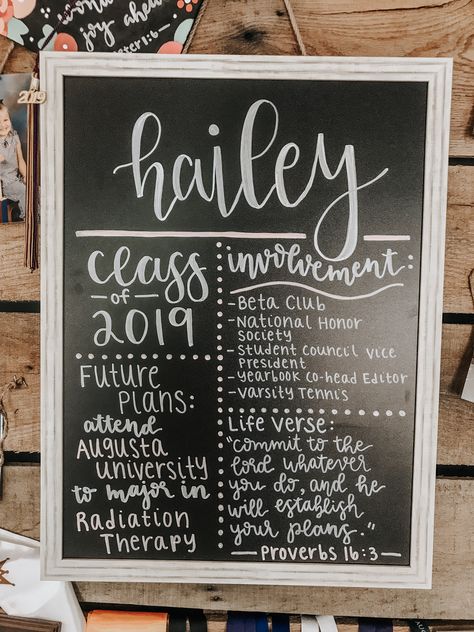 joy ahead
1 Peter 1:6
2019
hailey
class
of
2019
involvement:
- Beta Club
- National Honor
Society
- Student Council Vice
President
- yearbook co-head Editor
- Varsity Tennis
Future
Plans:
attend
Augusta
university
to major in
Radiation
Therapy
Life Verse:
"commit to the
lord whatever
you do, and he
will establish
your plans."
- Proverbs 16:3 -